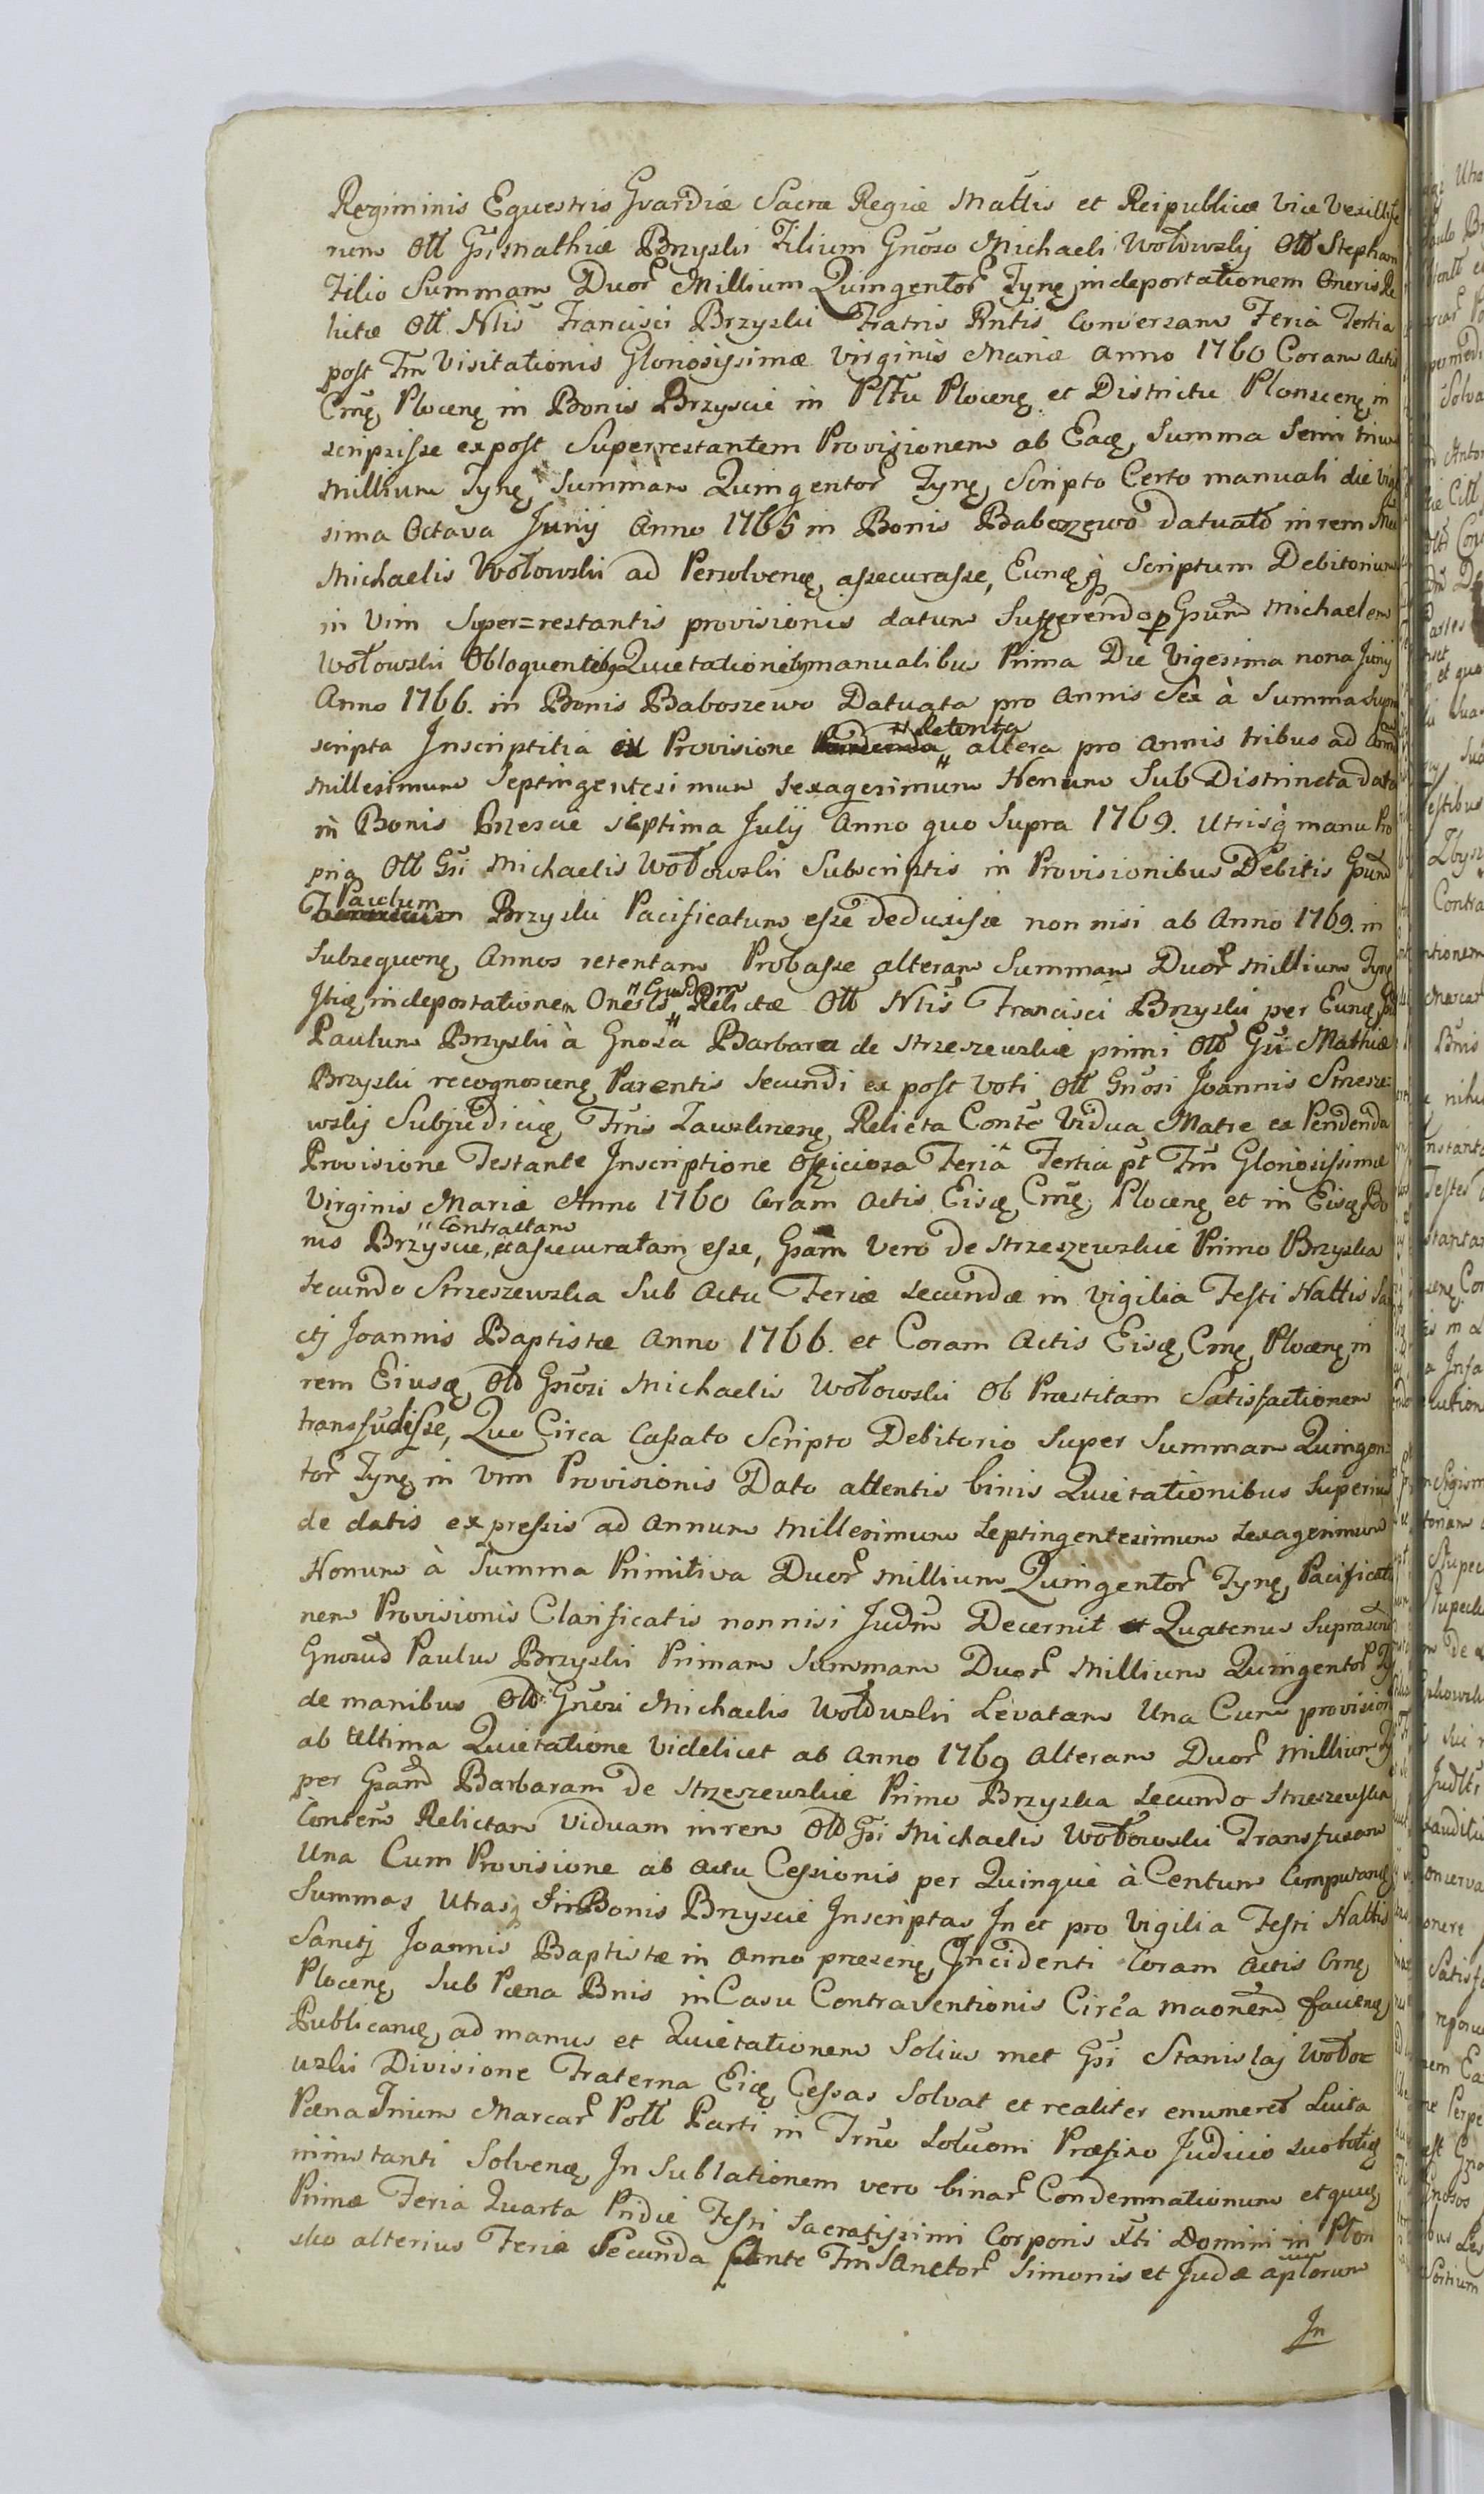 Regiminis Equestris Gvardiæ Sacræ Regiæ Mattis et Reipublicæ Vice Vexillife
rem Ott Gsi Mathiæ Brzyski Filium Gnoso Michaeli Wołowskÿ Ott Stephani
Filio Summam Duor Millium Quingentor Fynę, in deportationem Oneris Re
lictæ Ott Nlis Francisci Brzyski Fratris Antis Conversam Feria Tertia
post Fm Visitationis Gloriosissimæ Virginis Mariæ Anno 1760 Coram Actis
Crnę, Plocenę in Bonis Brzyscie in Pltu Plocenę et Districtu Plonscenę, in
scripsisse ex post Superrestantem Provisionem ab Eadę, Summa Semi trium
Millium Fynę, Summam Quingentor Fynę, Scripto Certo manuali die Vige
sima Octava Junÿ Anno 1765 in Bonis Baboszewo datuato in rem
Michaelis Wołowski ad Persolvenę, assecurasse, Eunęq Scriptum Debitorium
in Vim Super=restantis provisionis datum Sufferendo p Gsum Michaelem
Wołowski Obloquentibq Quietationibq manualibus Prima Die Vigesima nona Junÿ
Anno 1766. in Bonis Baboszewo Datuata pro Annis Sex à Summa Supra
scripta Inscriptitia ex Provisione "Retenta" altera pro Annis tribus ad Annum
Millesimum Septingentesimum Sexagesimum Nonum Sub Distincta data
in Bonis Brzescie Septima Julÿ Anno quo Supra 1769. Utrisq manu Pro
pria Ott Gsi Michaelis Wołowski Subscriptis in Provisionibus Debitis Gsum
Paulum Brzyski Pacificatum esse deduxisse non nisi ab Anno 1769. in
Subsequenę, Annos retentam Probasse alteram Summam Duor Millium Fynę
Itię, in deportationem Oneris "Ejusdem" Relictæ Ott Nlis Francisci Brzyski per Eunę,
Paulum Brzyski à Gnosa Barbara de Strzeszewskie primi Ott Gsi Mathiæ
Brzyski recognoscenę, Parentis Secundi ex post Voti Ott Gnosi Joannis Strzesze
wskÿ Subjudicię, Frnis Zawskrinenę, Relicta Conte Vidua Matre ex Pendenda
Provisione Testante Inscriptione Officiosa Feria Tertia pt Fm Gloriosissimæ
Virginis Mariæ Anno 1760 Coram Actis Eisę, Crnę, Plocenę et in Eisę, Bo
nis Brzyscie, "Contractam" et assecuratam esse, Gsam Vero de Strzeszewskie Primo Brzyska
Secundo Strzeszewska Sub Actu Feriæ Secundæ in Vigilia Festi Nattis San
ctj Joannis Baptistæ Anno 1766. et Coram Actis Eisę, Crnę, Plocenę, in
rem Eiusę, Ott Gnosi Michaelis Wołowski Ob Præstitam Satisfactionem
transfudisse, Quo Circa Cassato Scripto Debitorio Super Summam Quingen
tor Fynę in Vim Provisionis Dato attentis binis Quietationibus Superius
de datis expressis ad Annum Millesimum Septingentesimum Sexagesimum
Nonum à Summa Primitiva Duor Millium Quingentor Fynę, Pacificatio
nem Provisionis Clarificatis nonnisi Judm Decernit et Quatenus Suprascrtus
Gnosus Paulus Brzyski Primam Summam Duor Millium Quingentor Fy
de manibus Ott Gnosi Michaelis Wołowski Levatam Una Cum provisione
ab Ultima Quietatione Videlicet ab Anno 1769 Alteram Duor Millium Fy
per Gsam Barbaram de Strzeszewskie Primo Brzyska Secundo Strzeszewska
Contem Relictam Viduam in rem Ott Gsi Michaelis Wołowski Transfusam
Una Cum Provisione ab Actu Cessionis per Quinque à Centum Computanę
Summas Utrasq in Bonis Brzyscie Inscriptas In et pro Vigilia Festi Nattis
Sanctj Joannis Baptistæ in Anno præsenę, Incidenti Coram Actis Crnę
Plocenę, Sub Pæna Bnis in Casu Contraventionis Circa maonend favenę
Publicanę, ad manus et Quietationem Solius met Gsi Stanislaj Woło=
wski Divisione Fraterna Eię, Cessas Solvat et realiter enumeret Luita
Pæna Trium Marcar Poll Parti in Frno Solvoni Præfixo Judicio suo totię
ninstanti Solvenę, In Sublationem vero binar Condemnationum et quię
Primæ Feria Quarta Pridie Festi Sacratissimi Corporis Xti Domini in Plon
sko alterius Feria Secunda Ante Fm Sanctor Simonis et Judæ aplorum
In